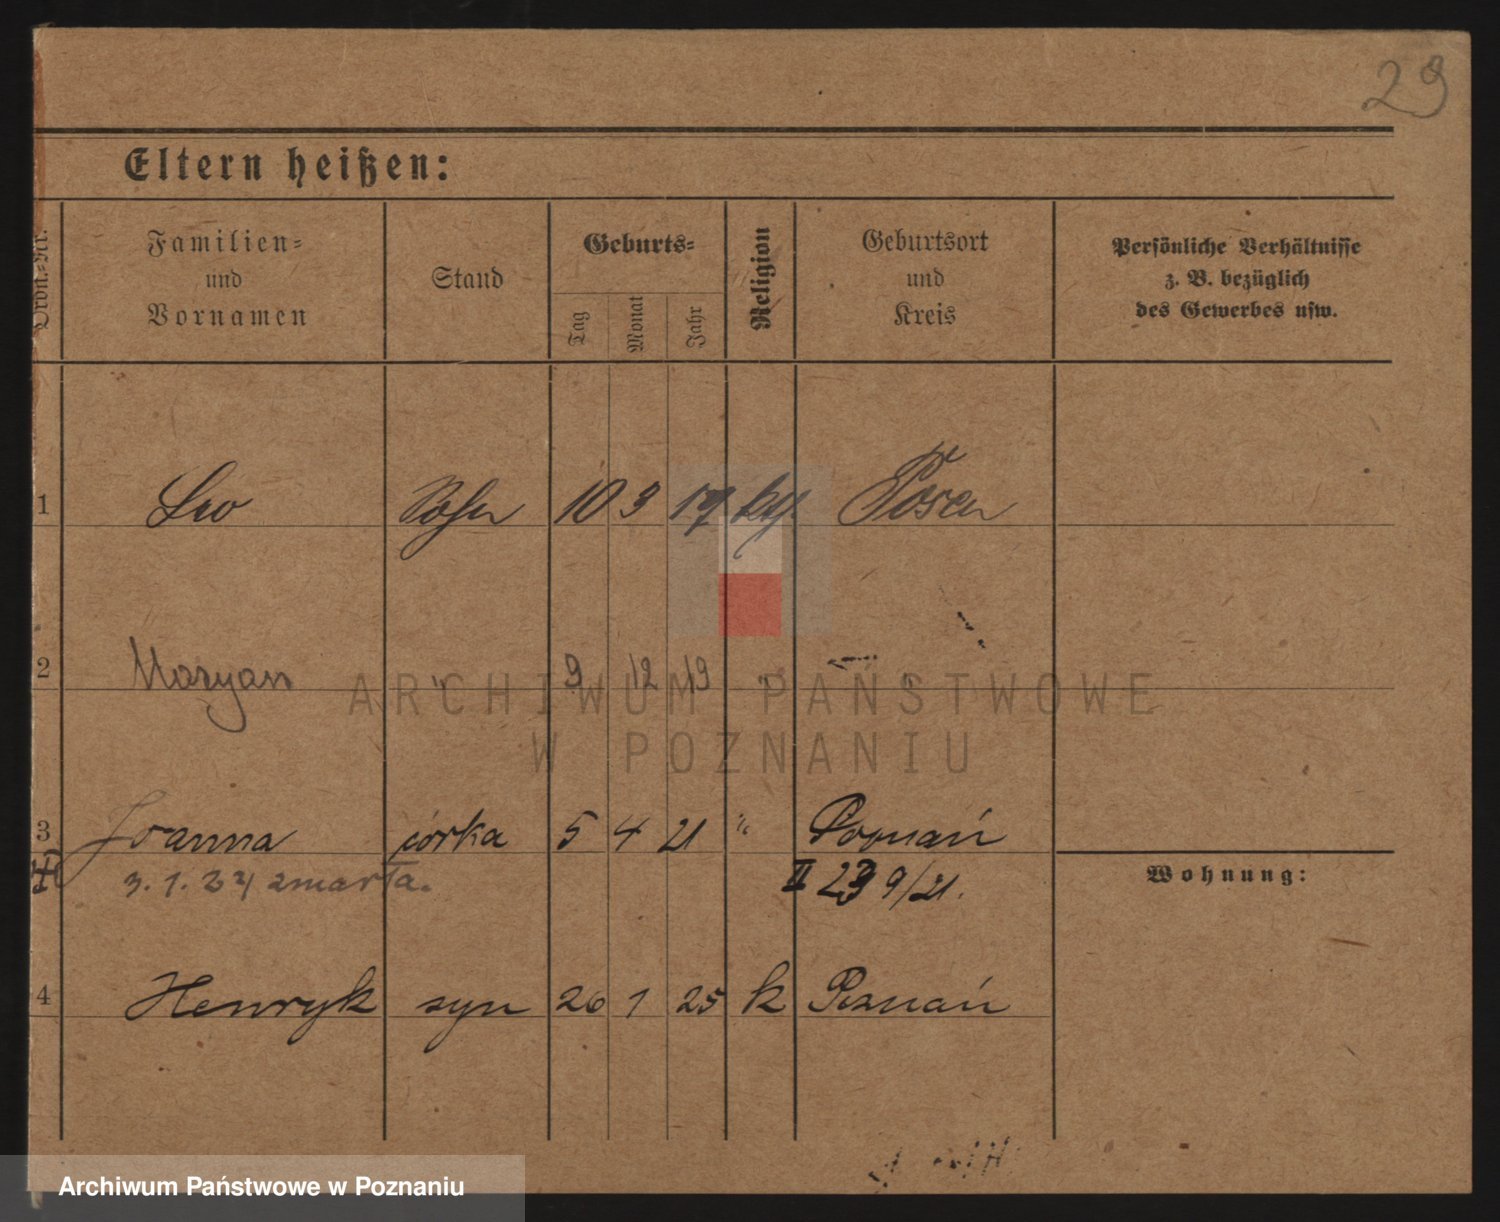 29
Eltern heißen:
Ordn.-Nr.
Familien- und Vornamen
Stand
Geburts-
Tag
Monat
Jahr
Religion
Geburtsort und Kreis
Persönliche Verhältnisse
z. B. bezüglich
des Gewerbes usw.
1 Leo Sohn 10 3 19 kth Posen
2 Maryan " 9 12 19 " "
ARCHIWUM PAŃSTWOWE
W POZNANIU
3 Joanna córka 5 4 21 " Poznań
3. 1. 24 zmarła. II 23 9/21.
Wohnung:
4 Henryk syn 26 1 25 k Poznań
Archiwum Państwowe w Poznaniu